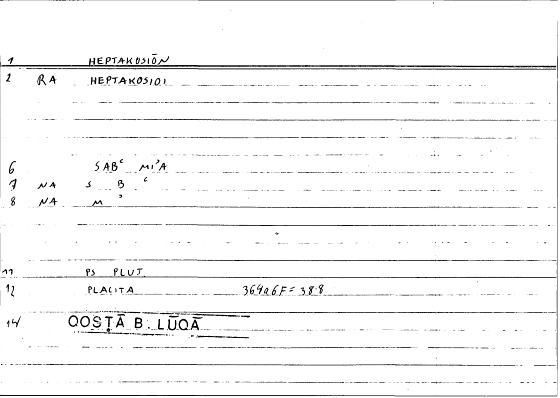 1 HEPTAKOSIŌN
2 RA HEPTAKOSIOI
6 SABʿ MIʾA
7 NA S B ʿ
8 NA M ʾ
11 PS PLUT
12 PLACITA 369a6F = 388
14 QOSṬĀ B. LŪQĀ